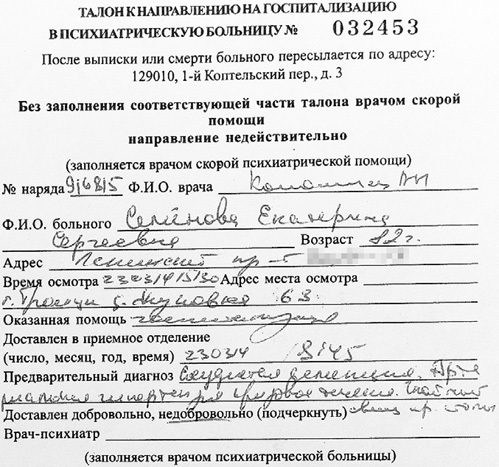 ТАЛОН К НАПРАВЛЕНИЮ НА ГОСПИТАЛИЗАЦИЮ
В ПСИХИАТРИЧЕСКУЮ БОЛЬНИЦУ № 032453
После выписки или смерти больного пересылается по адресу:
129010, 1-й Коптельский пер., д. 3
Без заполнения соответствующей части талона врачом скорой
помощи
направление недействительно
(заполняется врачом скорой психиатрической помощи)
№ наряда Ф.И.О. врача
Ф.И.О. больного Семёнова Екатерина
Сергеевна Возраст 82 г.
Адрес Ленинский пр-т
Время осмотра Адрес места осмотра
г. Троицк д. 63
Оказанная помощь госпитализация
Доставлен в приемное отделение
(число, месяц, год, время) 230314 18:45
Предварительный диагноз Сосудистая деменция. Арте
риальная гипертензия течения.
Доставлен добровольно, недобровольно (подчеркнуть)
Врач-психиатр
(заполняется врачом психиатрической больницы)